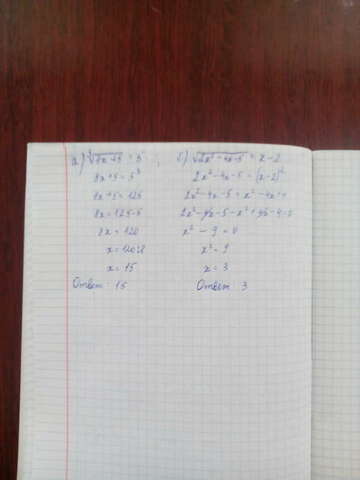 а) ∛8x+5 = 5
8x+5 = 5³
8x+5 = 125
8x = 125-5
8x = 120
x = 120:8
x = 15
Ответ: 15
б) √2x²-4x-5 = x-2
2x²-4x-5 = (x-2)²
2x²-4x-5 = x²-4x+4
2x²-4x-5-x²+4x-4=0
x² - 9 = 0
x² = 9
x = 3
Ответ: 3